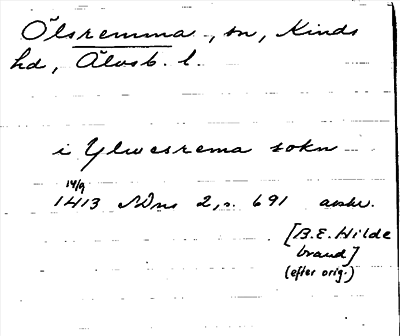 Ölsremma, sn, Kinds
hd, Älvsb. l.
i Ylwesrema sokn
14/9
1413 SDns 2, s. 691 avskr.
[B.E. Hilde
brand]
(efter orig.)